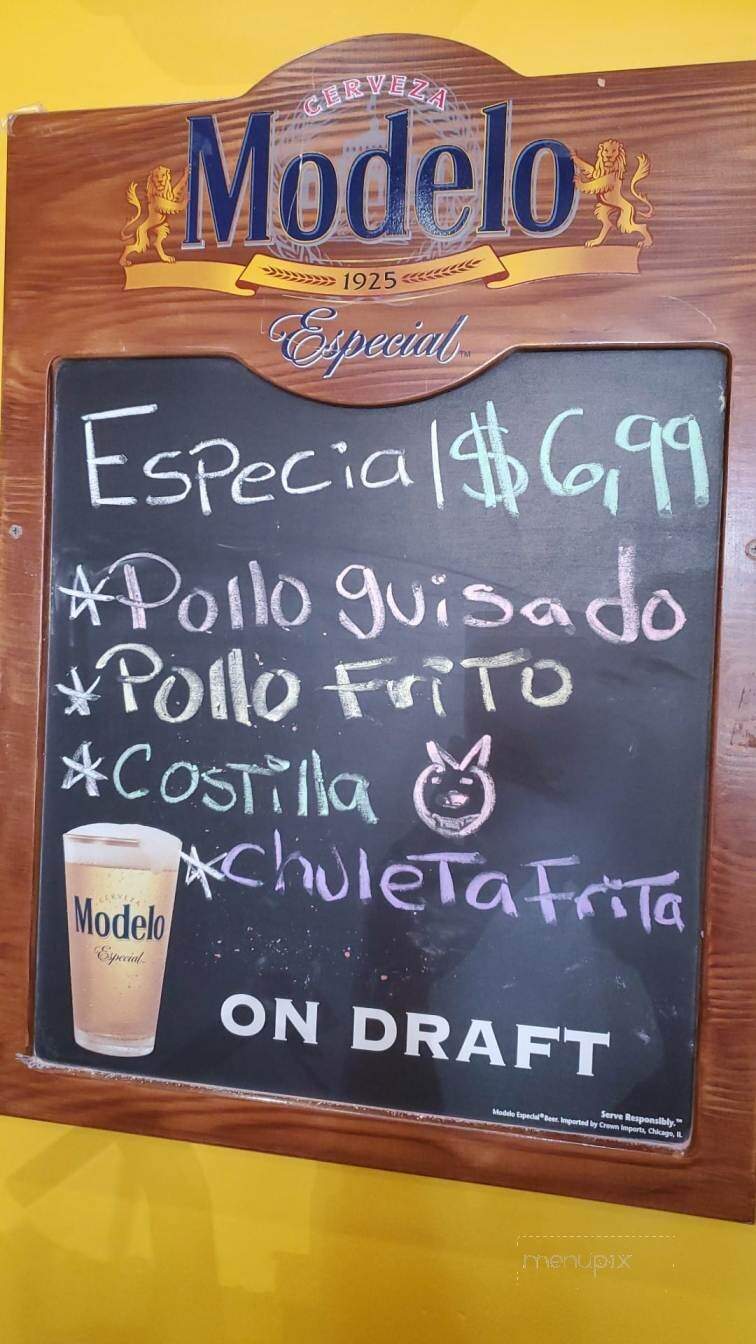 CERVEZA
Modelo
1925
Especial™
Especial $6,99
*Pollo guisado
*Pollo FriTO
*CosTilla
*ChuleTa FriTa
CERVEZA
Modelo
Especial
ON DRAFT
Serve Responsibly.™
Modelo Especial® Beer. Imported by Crown Imports, Chicago, IL
menupix